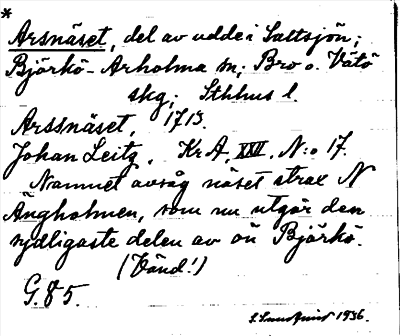 *
Arsnäset, del av udde i Saltsjön;
Björkö-Arholma sn; Bro o. Vätö
skg; Sthlms l.
Arssnäset, 1713.
Johan Leitz, Kr A, XXII, N:o 17.
Namnet avsåg näset strax N
Ängholmen, som nu utgör den
sydligaste delen av ön Björkö.
(Vänd!)
G. 85.
1936.